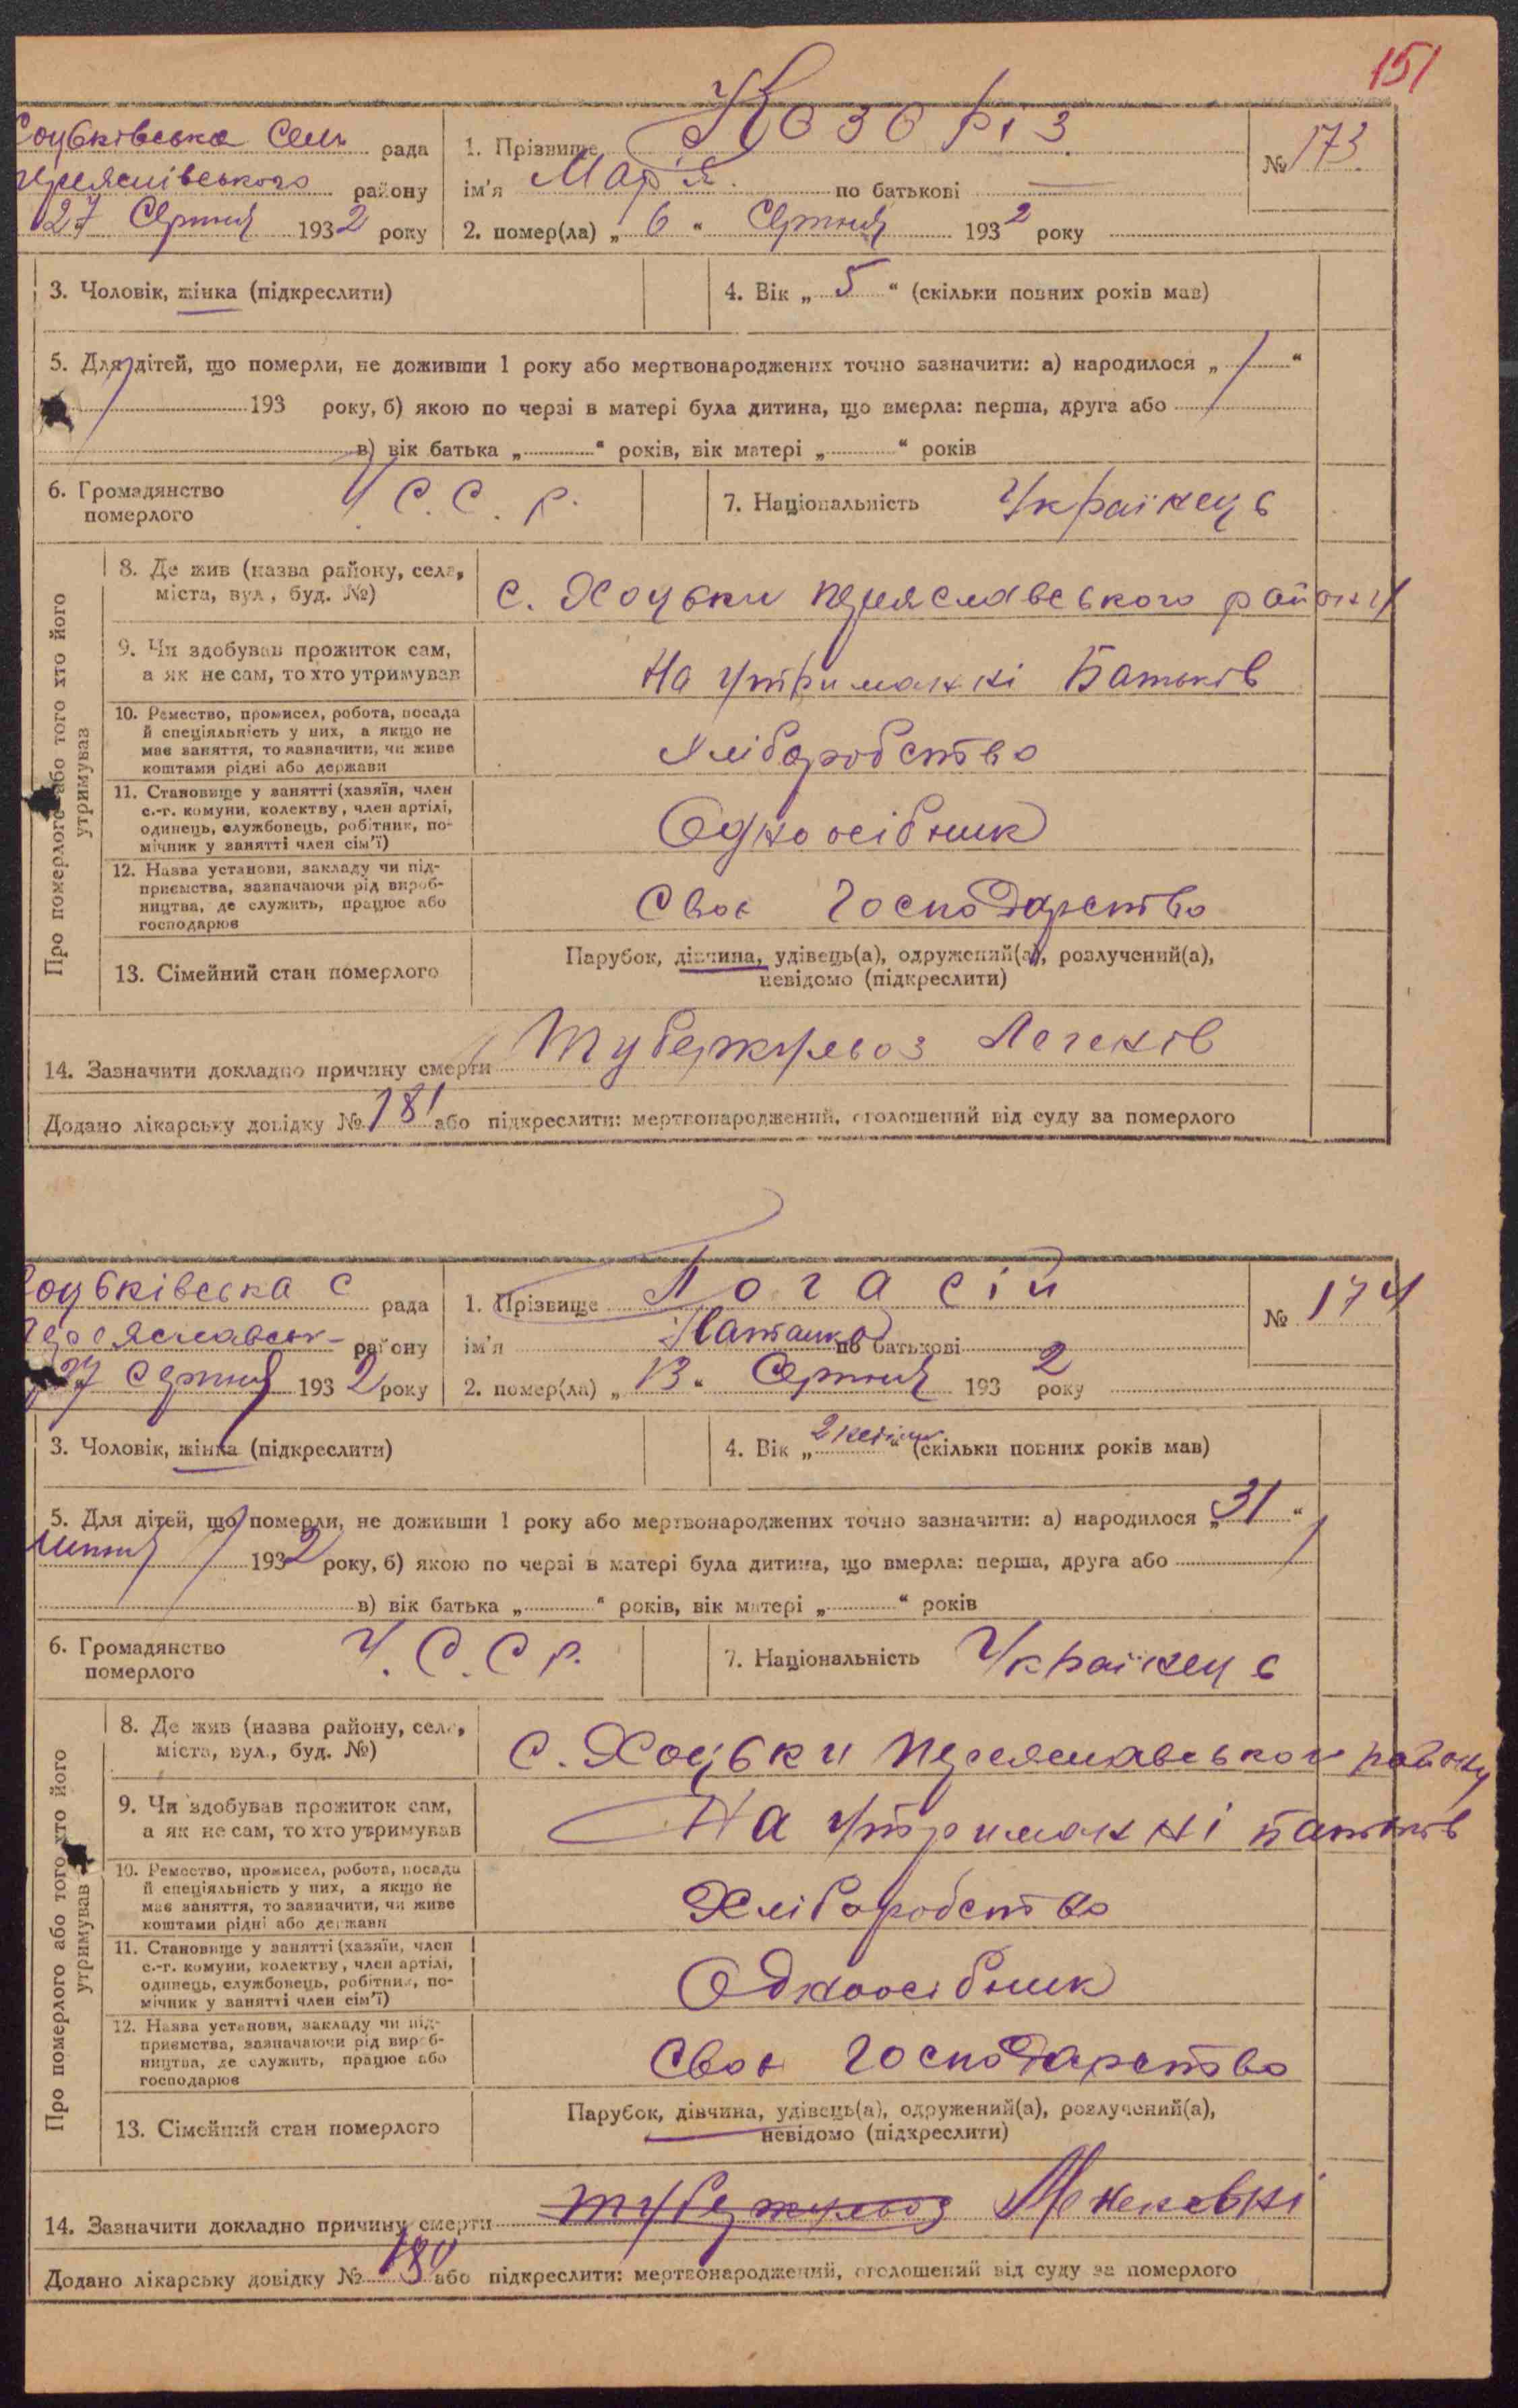 151
Хоцьківська Сель рада
Переяслівського району
27 Серпня 1932 року
1. Прізвище Козоріз
ім'я Мар'я по батькові —
2. помер(ла) „ 6 “ Серпня 1932 року
№ 173.
3. Чоловік, жінка (підкреслити)
4. Вік „ 5 “ (скільки повних років мав)
5. Для дітей, що померли, не доживши 1 року або мертвонароджених точно зазначити: а) народилося „ “
193 року, б) якою по черзі в матері була дитина, що вмерла: перша, друга або
в) вік батька „ “ років, вік матері „ “ років
6. Громадянство
померлого
У.С.С.Р.
7. Національність Українець
Про померлого або того хто його
утримував
8. Де жив (назва району, села,
міста, вул., буд. №)
с. Хоцьки переяславського району
9. Чи здобував прожиток сам,
а як не сам, то хто утримував
На утриманні Батьків
10. Ремество, промисел, робота, посада
й спеціяльність у них, а якщо не
має заняття, то зазначити, чи живе
коштами рідні або держави
Хліборобство
11. Становище у занятті (хазяїн, член
с.-г. комуни, колектву, член артілі,
одинець, службовець, робітник, по-
мічник у занятті член сім'ї)
Одноосібник
12. Назва установи, закладу чи під-
приємства, зазначаючи рід вироб-
ництва, де служить, працює або
господарює
Своє Господарство
13. Сімейний стан померлого
Парубок, дівчина, удівець(а), одружений(а), розлучений(а),
невідомо (підкреслити)
14. Зазначити докладно причину смерти Туберкульоз Легенів
Додано лікарську довідку № 181 або підкреслити: мертвонароджений, оголошений від суду за померлого
Хоцьківська С рада
Переяславськ- району
27 Серпня 1932 року
1. Прізвище Погасій
ім'я Наталка по батькові
2. помер(ла) „ 13 “ Серпня 1932 року
№ 174
3. Чоловік, жінка (підкреслити)
4. Вік „ 2 неділи “ (скільки повних років мав)
5. Для дітей, що померли, не доживши 1 року або мертвонароджених точно зазначити: а) народилося „ 31 “
Липня 1932 року, б) якою по черзі в матері була дитина, що вмерла: перша, друга або
в) вік батька „ “ років, вік матері „ “ років
6. Громадянство
померлого
У.С.С.Р.
7. Національність Українець
Про померлого або того хто його
утримував
8. Де жив (назва району, села,
міста, вул., буд. №)
с. Хоцьки Переяславського району
9. Чи здобував прожиток сам,
а як не сам, то хто утримував
На утриманні батьків
10. Ремество, промисел, робота, посада
й спеціяльність у них, а якщо не
має заняття, то зазначити, чи живе
коштами рідні або держави
Хліборобство
11. Становище у занятті (хазяїн, член
с.-г. комуни, колектву, член артілі,
одинець, службовець, робітник, по-
мічник у занятті член сім'ї)
Одноосібник
12. Назва установи, закладу чи під-
приємства, зазначаючи рід вироб-
ництва, де служить, працює або
господарює
Своє Господарство
13. Сімейний стан померлого
Парубок, дівчина, удівець(а), одружений(а), розлучений(а),
невідомо (підкреслити)
14. Зазначити докладно причину смерти туберкульоз
Додано лікарську довідку № 180 або підкреслити: мертвонароджений, оголошений від суду за померлого